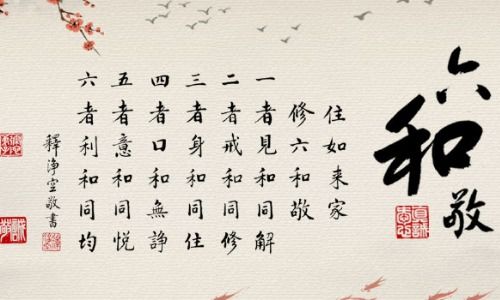 六和敬
住如来家
修六和敬
一者見和同解
二者戒和同修
三者身和同住
四者口和無諍
五者意和同悦
六者利和同均
釋淨空敬書